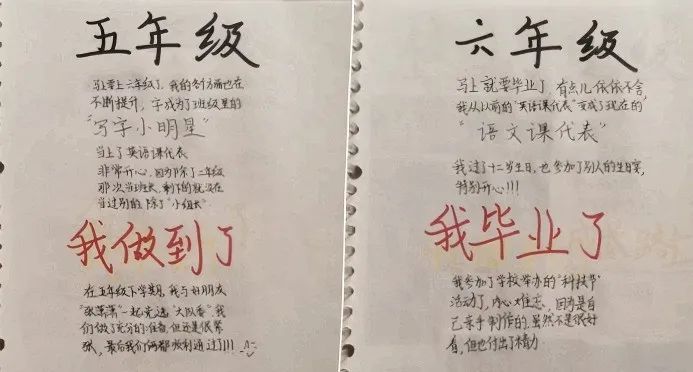 五年级
马上要上六年级了，我的各个方面也在
不断提升，字成为了班级里的
“写字小明星”
当上了英语课代表
非常开心，因为除了二年级
那次当班长，剩下的就没在
当过别的，除了“小组长”
我做到了
在五年级下学期，我与好朋友
“张萧萧”一起竞选“大队委”，我
们做了充分的准备，但还是很紧
张，最后我们俩都顺利通过了!!!
六年级
马上就要毕业了，有点儿依依不舍，
我从以前的“英语课代表”变成了现在的
“语文课代表”
我过了十二岁生日，也参加了别人的生日宴，
特别开心!!!
我毕业了
我参加了学校举办的“科技节”
活动了，内心难忘，因为是自
己亲手制作的，虽然不是很好
看，但也付出了精力